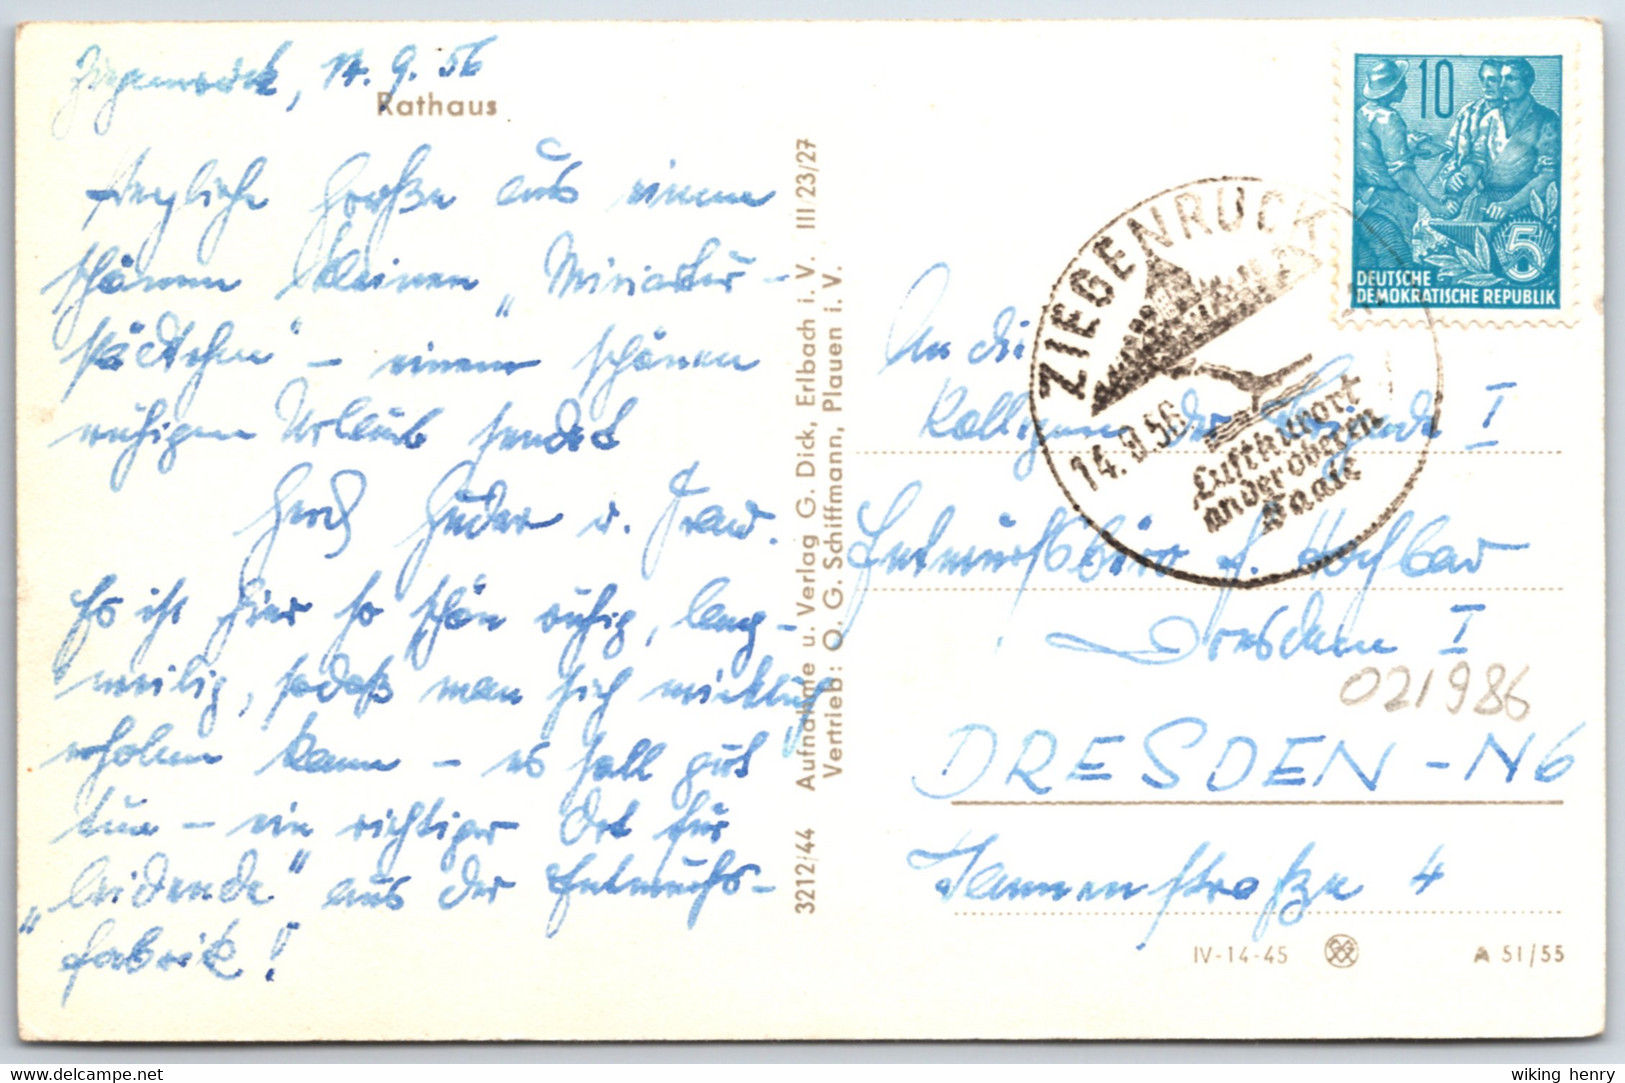 Ziegenrück, 14. 9. 56
Rathaus
Herzliche Grüße aus einem
schönen kleinen „Miniatur-
städtchen" – einem schönen
ruhigen Urlaub sendet
Gerd u. Frau.
Es ist hier so schön ruhig, lang-
weilig, sodaß man sich wirklich
erholen kann – es soll gut
tun – ein richtiger Ort für
„leidende" aus der Entwurfs-
fabrik!
3212/44 Aufnahme u. Verlag G. Dick, Erlbach i. V. III/23/27
Vertrieb: O. G. Schiffmann, Plauen i. V.
10
DEUTSCHE
DEMOKRATISCHE REPUBLIK
5
ZIEGENRÜCK
14.9.56
Luftkurort
an der oberen
Saale
An die
Kollegen der Brigade I
Entwurfsbüro f. Hochbau
Dresden I
021986
DRESDEN-N6
Tannenstraße 4
IV-14-45
A 51/55
wiking henry
www.delcampe.net